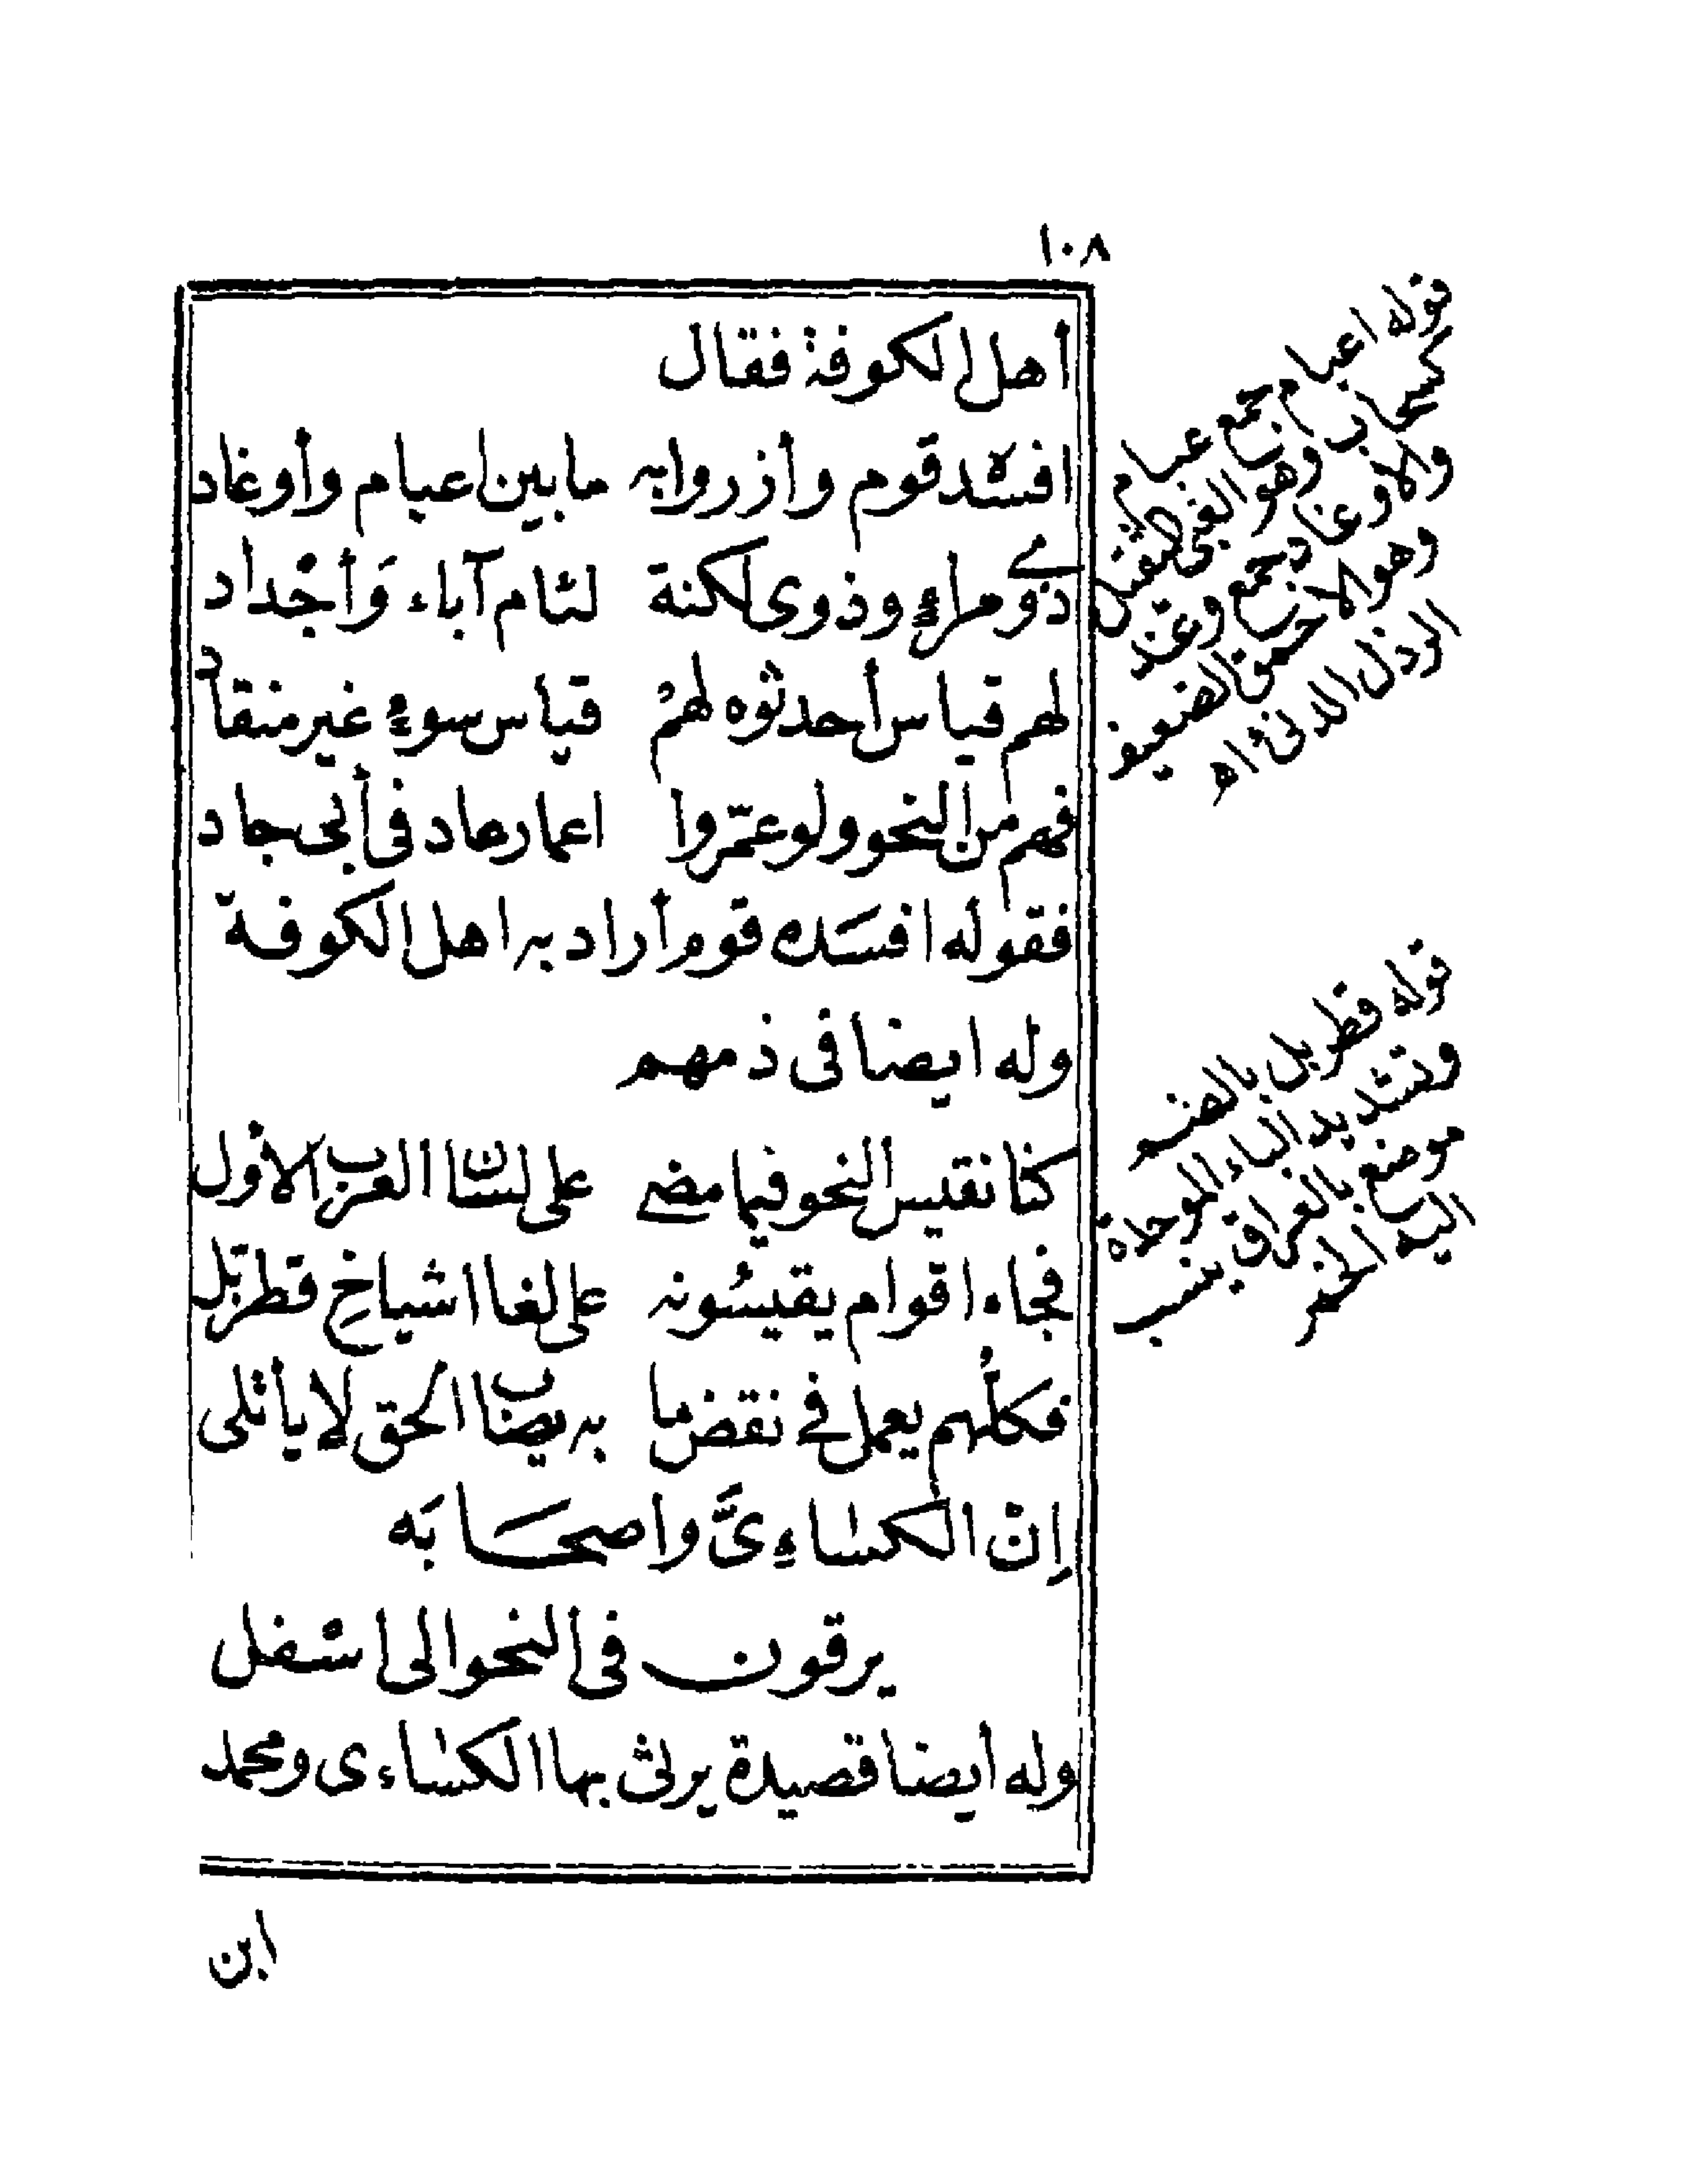 ١٠٨
أهل الكوفة فقال
افسده قوم وأزروا به ما بين اعيام وأوغاد
ذوو مراء وذوى لكنة لئام آباء وَأجْداد
لهم قياس أحدثوه لهمْ قياس سوء غير منقاد
فهم من النحو ولو عمّروا اعمار عاد فى أبى جاد
فقوله افسَده قوم أراد به اهل الكوفة
وله ايضا فى ذمهم
كنا نقيس النحو فيما مضى على لسان العرب الأول
فجاء اقوام يقيسُونه على لغا اشياخِ قطربّل
فكلُهم يعمل فى نقض ما به يصاب الحق لا يأتلى
إنْ الكساءِىَّ واصحَابَه
يرقون فى النحو الى اسْفل
وله أيضا قصيدة يرثى بها الكساءى ومحمد
ابن
قوله اعيام جمع عيام
كسحاب وهو الثقيل
والاوغاد جمع وغد
وهو الاحمق الضعيف
الرذل الدنئ اه
قوله قطربل بالضم
وتشديد الباء الموحدة
موضع بالعراق ينسب
اليه الخمر